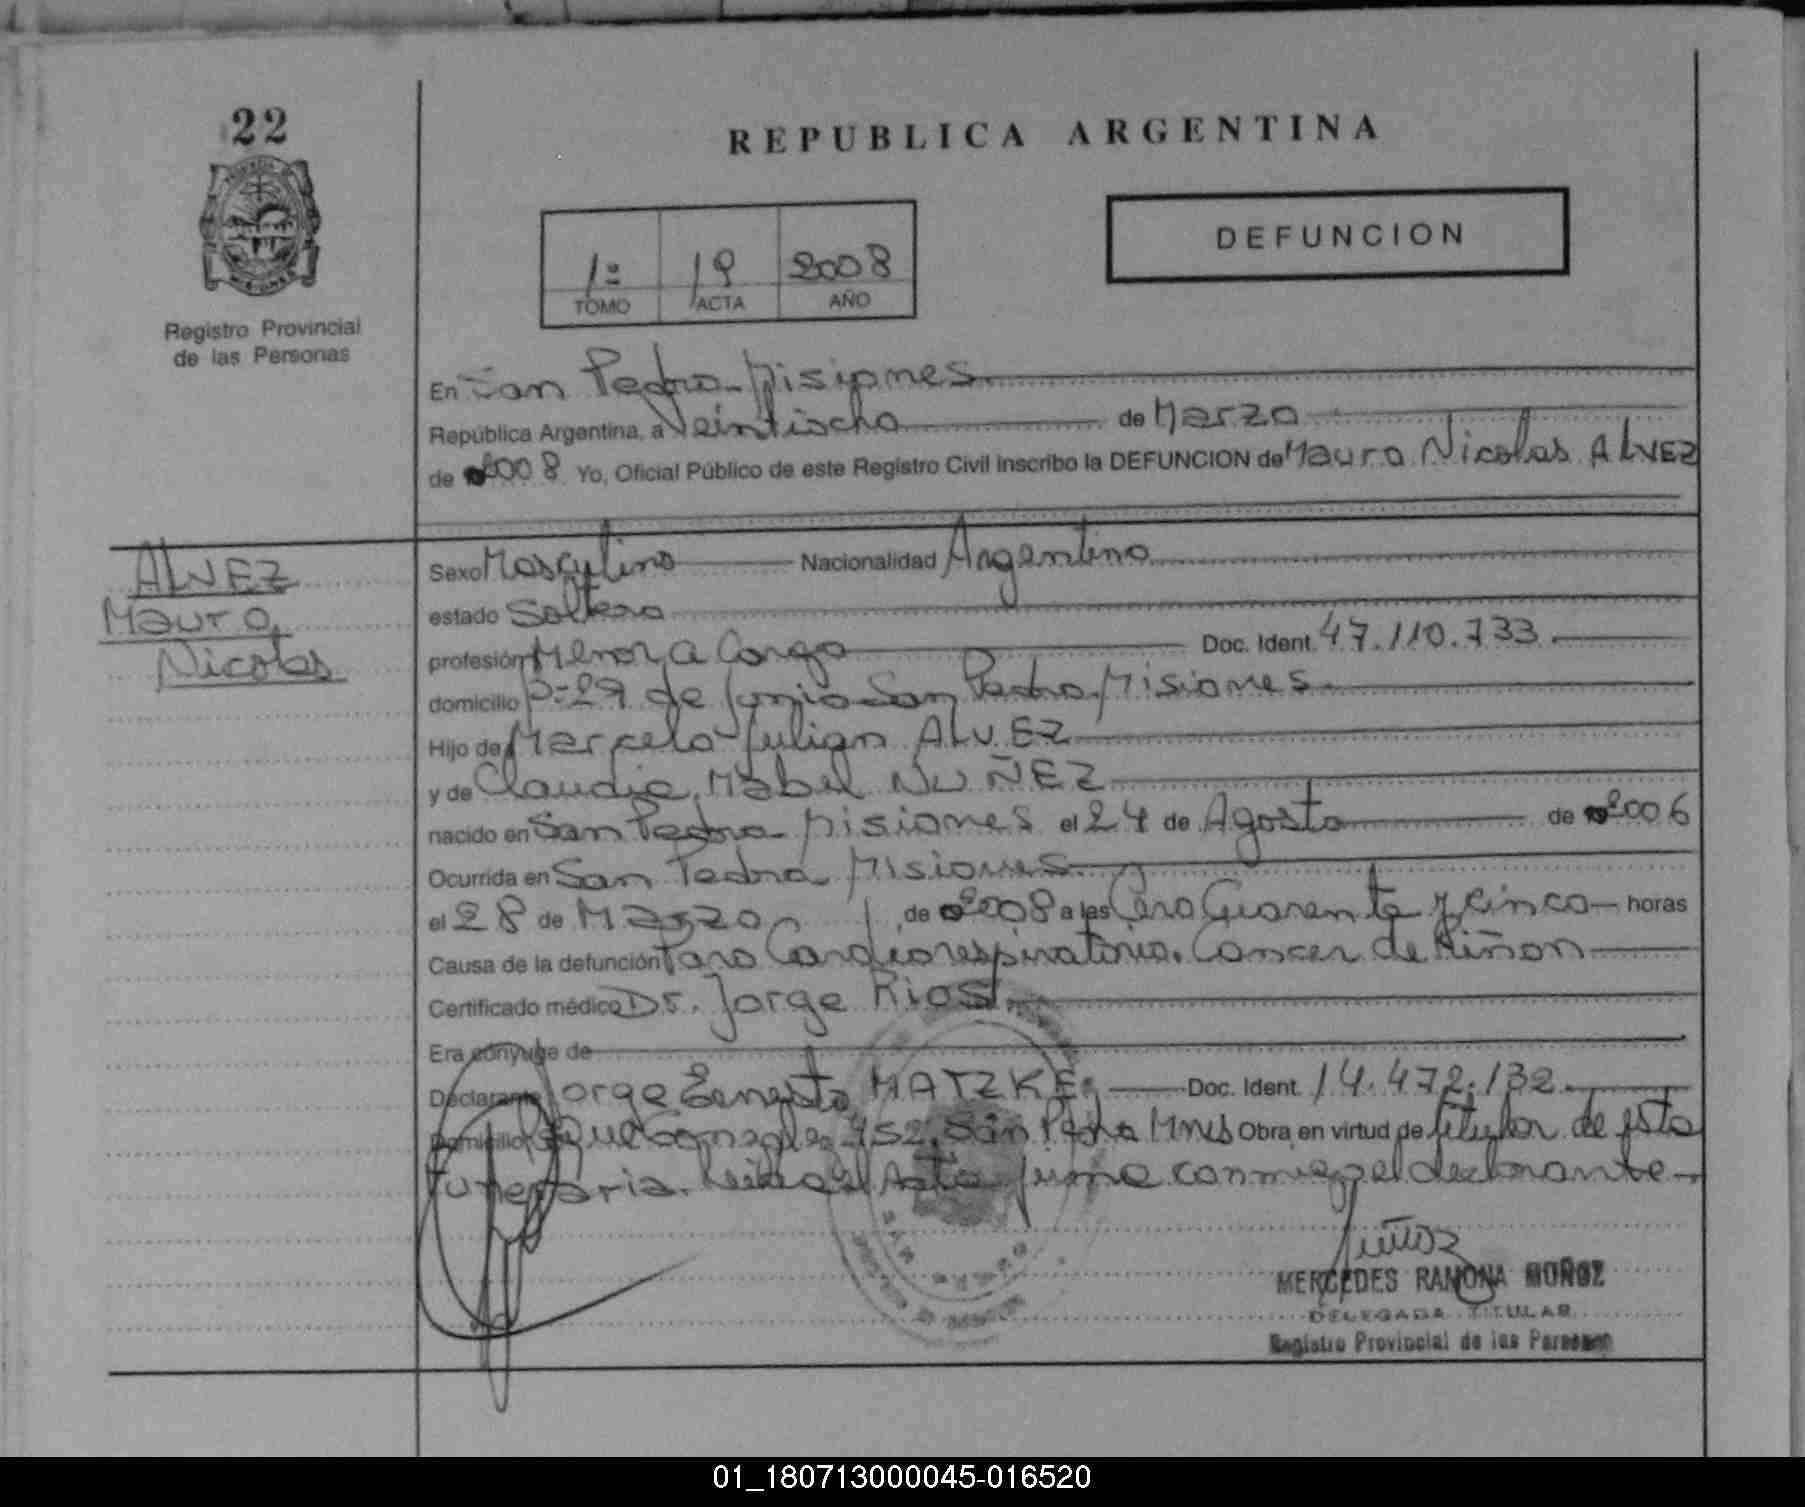 22
REPUBLICA ARGENTINA
DEFUNCION
1º 19 2008
TOMO ACTA AÑO
Registro Provincial
de las Personas
En San Pedro - Misiones
República Argentina, a Veintiocho de Marzo
de 2008 Yo, Oficial Público de este Registro Civil inscribo la DEFUNCION de Mauro Nicolas ALVEZ
ALVEZ
Mauro
Nicolas
Sexo Masculino Nacionalidad Argentino
estado Soltero
profesión Menor a Cargo Doc. Ident. 47.110.733.
domicilio Bº-29 de Junio San Pedro Misiones
Hijo de Marcelo Julian ALVEZ
y de Claudia Mabel NUÑEZ
nacido en San Pedro Misiones el 24 de Agosto de 2006
Ocurrida en San Pedro Misiones
el 28 de Marzo de 2008 a las Cero Cuarenta y cinco horas
Causa de la defunción Paro Cardiorespiratorio. Cancer de Riñon
Certificado médico Dr. Jorge Rios
Era cónyuge de
Declarante Jorge Ernesto MATZKE Doc. Ident. 14.472.132
Domicilio 952 San Pedro Mnes Obra en virtud de titular de esta
funeraria. Leida el Acta firma conmigo el declarante
Muñoz
MERCEDES RAMONA MUÑOZ
DELEGADA TITULAR
Registro Provincial de las Personas
01_180713000045-016520